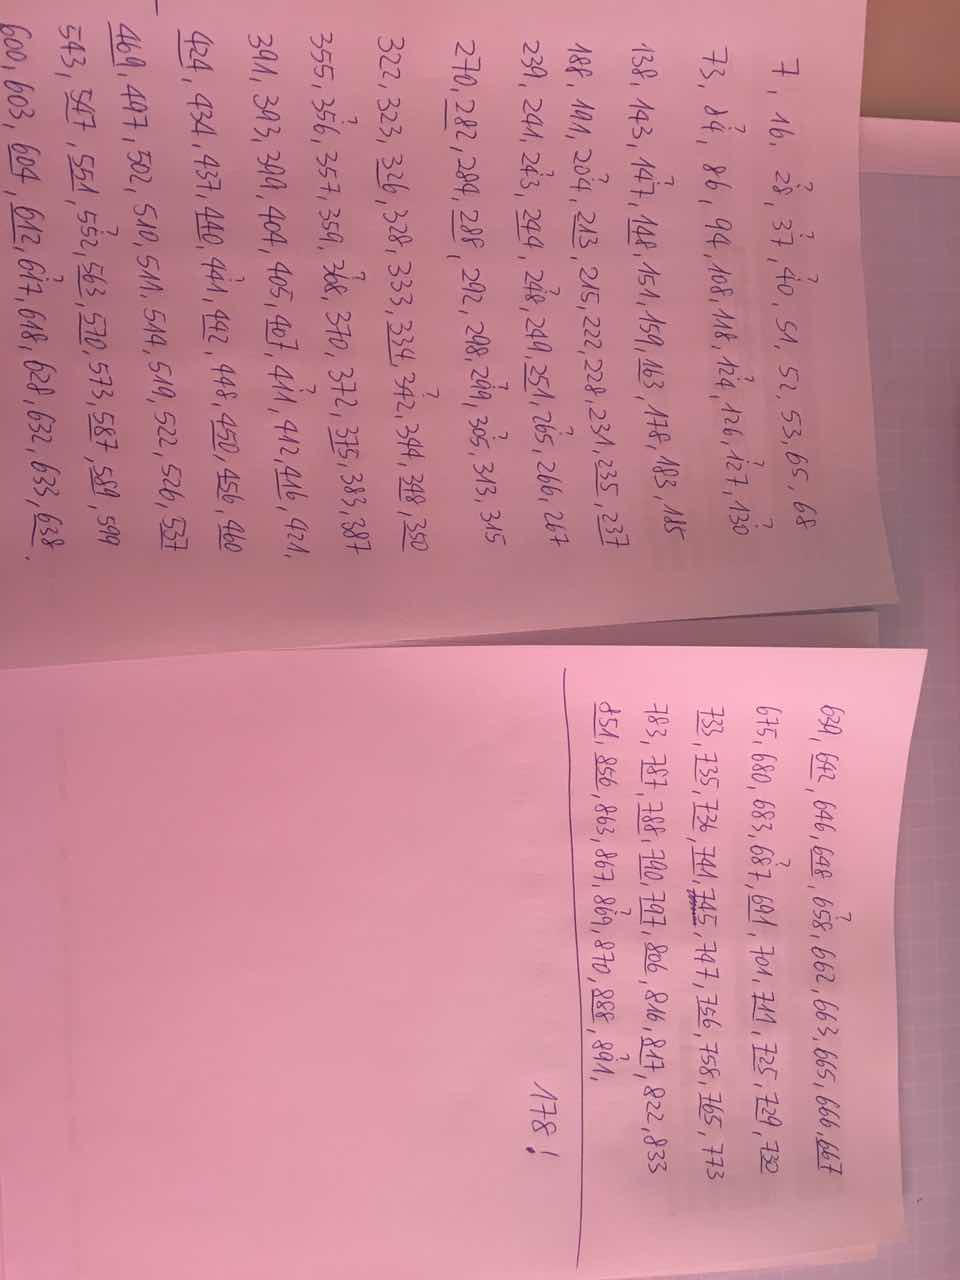 7, 16, 28?, 37?, 40?, 51, 52, 53, 65, 68
73, 84?, 86, 94, 108, 118, 124?, 126, 127?, 130?
138, 143, 147?, 148, 151, 159, 163, 178, 183, 185
188, 191, 204?, 213, 215, 222, 228, 231, 235, 237
239, 241, 243?, 244, 248?, 249, 251, 265?, 266, 267
270, 282, 284, 288, 292, 298, 299?, 305?, 313, 315
322, 323, 326, 328, 333, 334, 342?, 344, 348, 350
355, 356?, 357, 359, 368?, 370, 372, 375, 383, 387
391, 393, 399, 404, 405, 407, 411?, 412, 416, 421,
424, 434, 437, 440, 441?, 442, 448, 450, 456, 460
469, 497, 502, 510, 511, 514, 519, 522, 526, 537
543, 547, 551, 552?, 563, 570, 573, 587, 589, 599
600, 603, 604, 612, 617?, 618, 628, 632, 633, 638.
639, 642, 646, 648, 658?, 662, 663, 665, 666, 667
675, 680, 683, 687?, 691, 701, 711, 725, 729, 730
733, 735, 736, 741, 745, 747, 756, 758, 765, 773
783, 787, 788, 790, 797, 806, 816, 817, 822, 833
851, 856, 863, 867, 869?, 870, 888, 891?,
178!